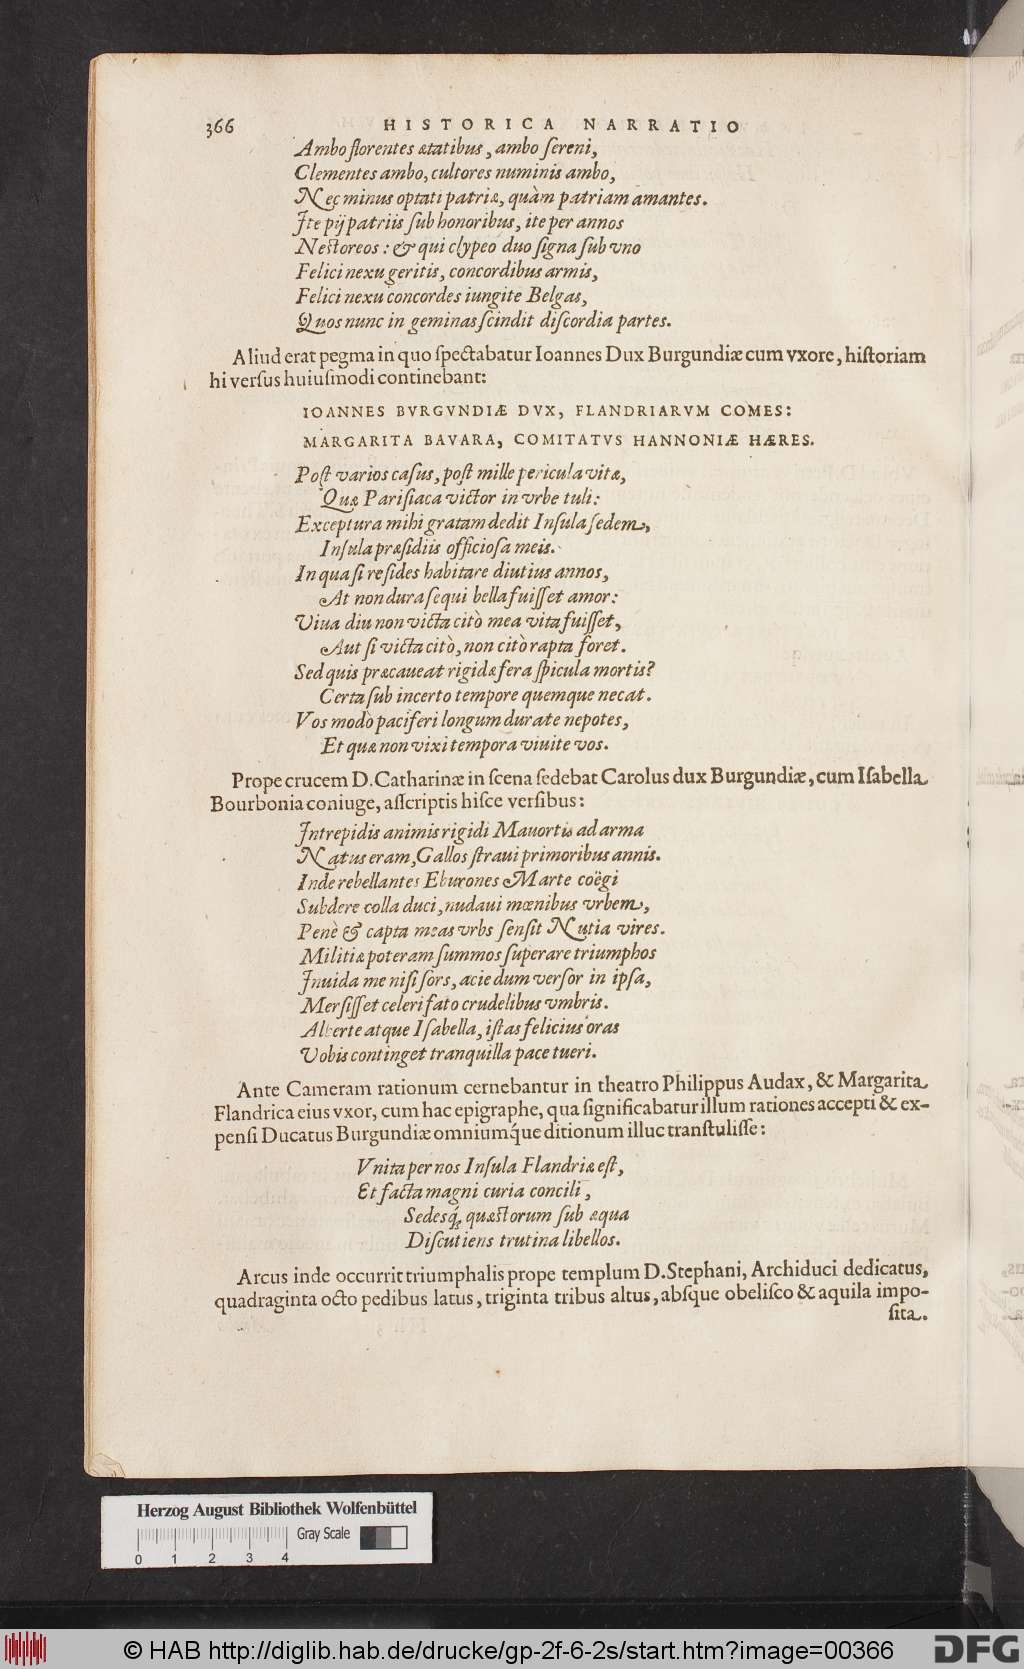 366 HISTORICA NARRATIO
Ambo florentes ætatibus, ambo sereni,
Clementes ambo, cultores numinis ambo,
Nec minus optati patriæ, quàm patriam amantes.
Ite pij patriis sub honoribus, ite per annos
Nestoreos: & qui clypeo duo signa sub vno
Felici nexu geritis, concordibus armis,
Felici nexu concordes iungite Belgas,
Quos nunc in geminas scindit discordia partes.
Aliud erat pegma in quo spectabatur Ioannes Dux Burgundiæ cum vxore, historiam
hi versus huiusmodi continebant:
IOANNES BVRGVNDIÆ DVX, FLANDRIARVM COMES:
MARGARITA BAVARA, COMITATVS HANNONIÆ HÆRES.
Post varios casus, post mille pericula vitæ,
Quæ Parisiaca victor in vrbe tuli:
Exceptura mihi gratam dedit Insula sedem,
Insula præsidiis officiosa meis.
In qua si resides habitare diutius annos,
At non dura sequi bella fuisset amor:
Viua diu non victa citò mea vita fuisset,
Aut si victa citò, non citò rapta foret.
Sed quis præcaueat rigidæ fera spicula mortis?
Certa sub incerto tempore quemque necat.
Vos modò paciferi longum durate nepotes,
Et quæ non vixi tempora viuite vos.
Prope crucem D. Catharinæ in scena sedebat Carolus dux Burgundiæ, cum Isabella
Bourbonia coniuge, asscriptis hisce versibus:
Intrepidis animis rigidi Mauortis ad arma
Natus eram, Gallos straui primoribus annis.
Inde rebellantes Eburones Marte coëgi
Subdere colla duci, nudaui mœnibus vrbem,
Penè & capta meas vrbs sensit Nutia vires.
Militiæ poteram summos superare triumphos
Inuida me nisi sors, acie dum versor in ipsa,
Mersisset celeri fato crudelibus vmbris.
Alberte atque Isabella, istas felicius oras
Vobis continget tranquilla pace tueri.
Ante Cameram rationum cernebantur in theatro Philippus Audax, & Margarita
Flandrica eius vxor, cum hac epigraphe, qua significabatur illum rationes accepti & ex-
pensi Ducatus Burgundiæ omniumq́ue ditionum illuc transtulisse:
Vnita per nos Insula Flandriæ est,
Et facta magni curia concilî,
Sedesq́; quæstorum sub æqua
Discutiens trutina libellos.
Arcus inde occurrit triumphalis prope templum D. Stephani, Archiduci dedicatus,
quadraginta octo pedibus latus, triginta tribus altus, absque obelisco & aquila impo-
sita.
Herzog August Bibliothek Wolfenbüttel
Gray Scale
0 1 2 3 4
© HAB http://diglib.hab.de/drucke/gp-2f-6-2s/start.htm?image=00366
DFG